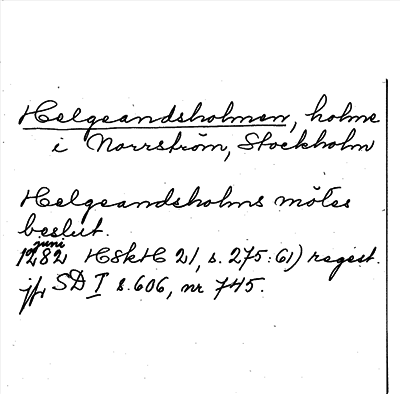 Helgeandsholmen, holme
i Norrström, Stockholm
Helgeandsholms mötes
beslut.
juni
1282 HSkH 21, s. 275: 61) regest.
jfr SD I s. 606, nr 745.